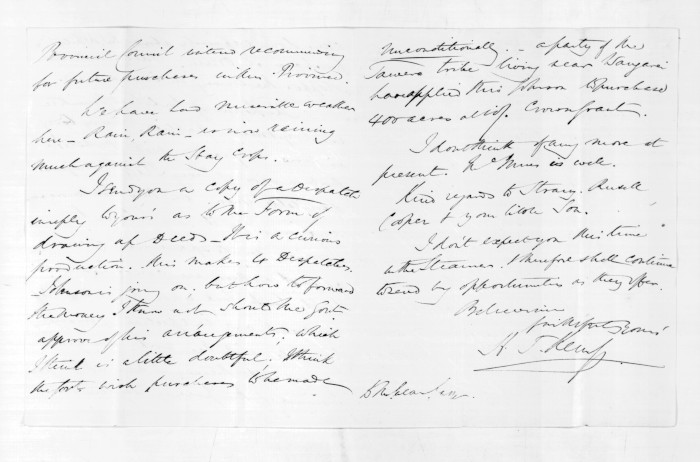 Provincial Council intend recommending
for future purchases within Province.
We have had miserable weather
here - Rain, Rain - is now raining
much against the Hay Crops.
I send you a copy of a Despatch
in reply to yours as to the Form of
drawing up Deeds - It is a curious
production. This makes 40 Despatches.
Johnson is going on, but how to forward
the money I know not should the Govt.
approve of his arrangements, which
I think is a little doubtful. I think
the Govt. wish purchases to be made
unconditionally. - a party of the
tribe living near Wangarei
have applied thro' Johnson to purchase
400 acres at 10/. Crown Grant.
I don't think of any more at
present. Mc is well.
Kind regards to Strang, Russell,
Cooper & your little Son.
I don't expect you this time
in the Steamer. I therefore shall continue
to send by opportunities as they offer.
Believe me
faithfully Yours
H. T. Kemp
D. McLean, Esq.